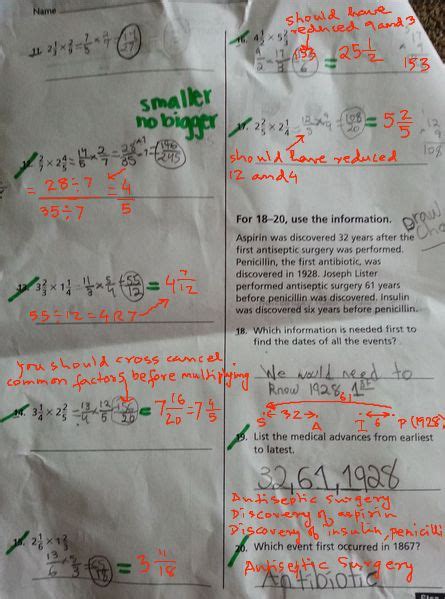 Name
11. 2 1/3 × 2/9 = 7/5 ×
smaller
no bigger
12. 2/7 × 2 4/5 = 14/5 × 2/7 = 28/35
= 28÷7 = 4
35÷7 5
13. 3 2/3 × 1 1/4 = 11/3 × 5/4 = 55/12 = 4 7/12
55 ÷ 12 = 4 R 7
you should cross cancel
common factors before multiplying
14. 3 1/4 × 2 2/5 = 13/4 × 12/5 = 156/20 = 7 16/20 = 7 4/5
15. 2 1/6 × 1 2/3
13/6 × 5/3 = 65/18 = 3 11/18
should have
reduced 9 and 3
16. 4 1/2 × 5 2/3
9/2 × 17/3 = 153/6 = 25 1/2
153
17. 2 2/5 × 2 1/4 = 12/5 × 9/4 = 108/20 = 5 2/5
12
108
should have reduced
12 and 4
For 18–20, use the information.
Draw
Aspirin was discovered 32 years after the
first antiseptic surgery was performed.
Penicillin, the first antibiotic, was
discovered in 1928. Joseph Lister
performed antiseptic surgery 61 years
before penicillin was discovered. Insulin
was discovered six years before penicillin.
18. Which information is needed first to
find the dates of all the events?
We would need to
Know 1928, 1st
61
S 32 A I 6 P (1928)
19. List the medical advances from earliest
to latest.
32, 61, 1928
Antiseptic surgery
Discovery of aspirin
Discovery of insulin, penicilli
20. Which event first occurred in 1867?
Antiseptic Surgery
Antibiotic